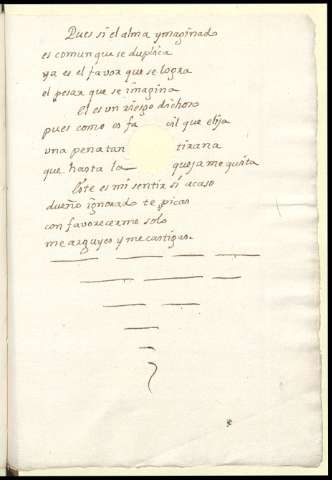 Pues si el alma ymaginado
es comun que se duplica
ya es el favor que se logra
el pesar que se imagina
El es un riesgo dichoso
pues como os fa cil que elija
una pena tan tirana
que hasta la quexa me quita
Este es mi sentir si acaso
dueño ignorado te picas
con favorecerme solo
me arguyes y me castigas.